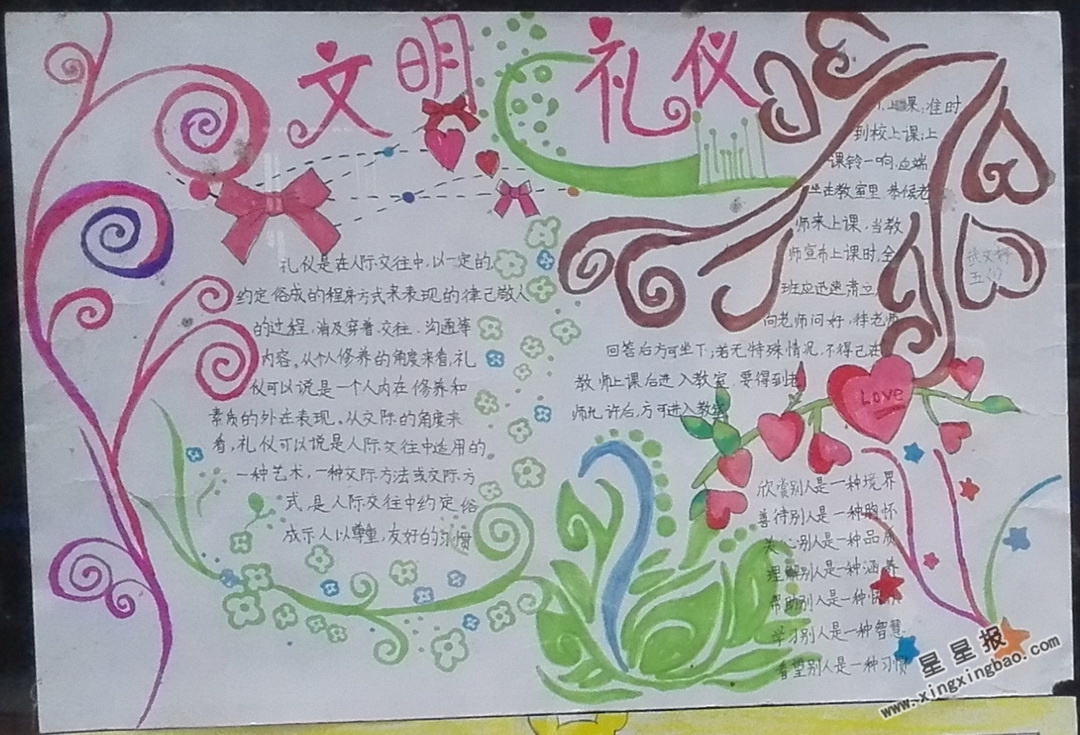 文明礼仪
礼仪是在人际交往中,以一定的,
约定俗成的程序方式来表现的律己敬人
的过程,涉及穿着,交往,沟通等
内容。从个人修养的角度来看,礼
仪可以说是一个人内在修养和
素质的外在表现。从交际的角度来
看,礼仪可以说是人际交往中适用的
一种艺术,一种交际方法或交际方
式,是人际交往中约定俗
成示人以尊重,友好的习惯
上课:准时
到校上课;上
课铃一响,应端
坐在教室里,恭候老
师来上课,当教
师宣布上课时,全
班应迅速肃立,
向老师问好,待老师
回答后方可坐下;若无特殊情况,不得已在
教师上课后进入教室,要得到老
师允许后,方可进入教室
五(1)
Love
欣赏别人是一种境界
善待别人是一种胸怀
关心别人是一种品质
理解别人是一种涵养
帮助别人是一种
学习别人是一种智慧
看望别人是一种习惯
星星报
www.xingxingbao.com